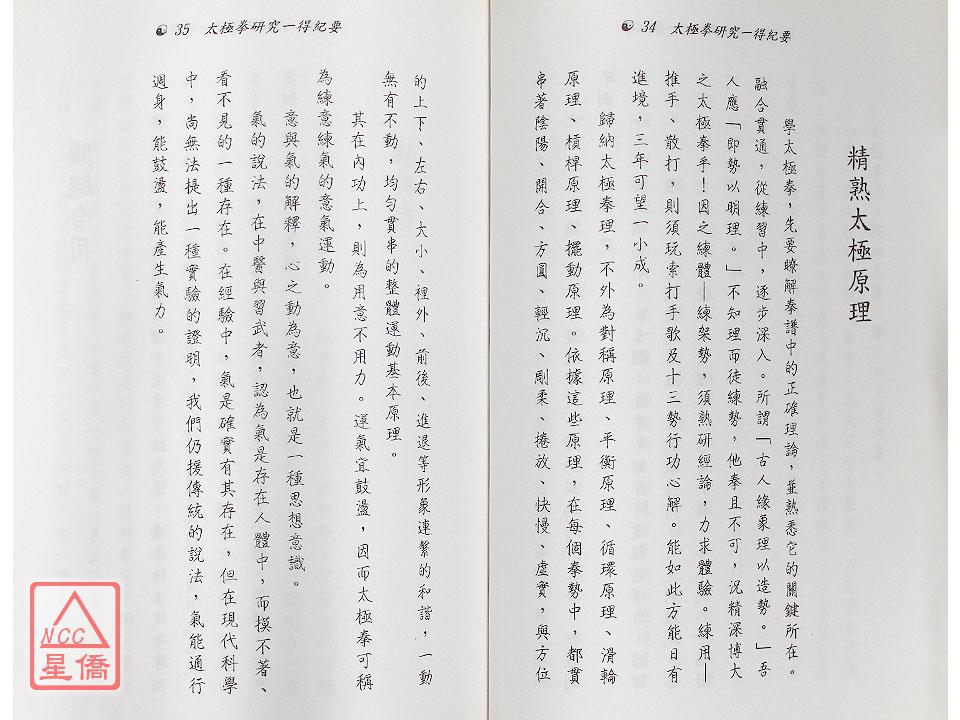 34 太極拳研究一得紀要
精熟太極原理
學太極拳，先要瞭解拳譜中的正確理論，並熟悉它的關鍵所在。
融合貫通，從練習中，逐步深入。所謂「古人緣象理以造勢。」吾
人應「即勢以明理。」不知理而徒練勢，他拳且不可，況精深博大
之太極拳乎！因之練體—練架勢，須熟研經論，力求體驗。練用—
推手、散打，則須玩索打手歌及十三勢行功心解。能如此方能日有
進境，三年可望一小成。
歸納太極拳理，不外為對稱原理、平衡原理、循環原理、滑輪
原理、槓桿原理、擺動原理。依據這些原理，在每個拳勢中，都貫
串著陰陽、開合、方圓、輕沉、剛柔、捲放、快慢、虛實，與方位
35 太極拳研究一得紀要
的上下、左右、大小、裡外、前後、進退等形象連繫的和諧，一動
無有不動，均勻貫串的整體運動基本原理。
其在內功上，則為用意不用力。運氣宜鼓盪，因而太極拳可稱
為練意練氣的意氣運動。
意與氣的解釋，心之動為意，也就是一種思想意識。
氣的說法，在中醫與習武者，認為氣是存在人體中，而摸不著、
看不見的一種存在。在經驗中，氣是確實有其存在，但在現代科學
中，尚無法提出一種實驗的證明，我們仍援傳統的說法，氣能通行
週身，能鼓盪，能產生氣力。
NCC
星僑